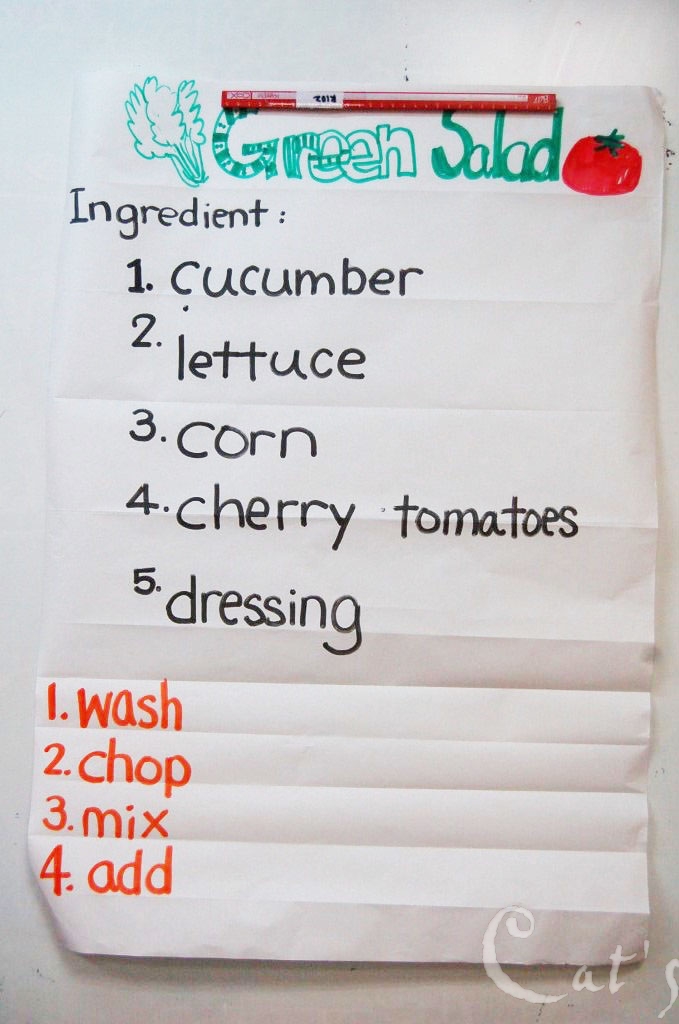 Green Salad
Ingredient:
1. cucumber
2. lettuce
3. corn
4. cherry tomatoes
5. dressing
1. wash
2. chop
3. mix
4. add
Cat's